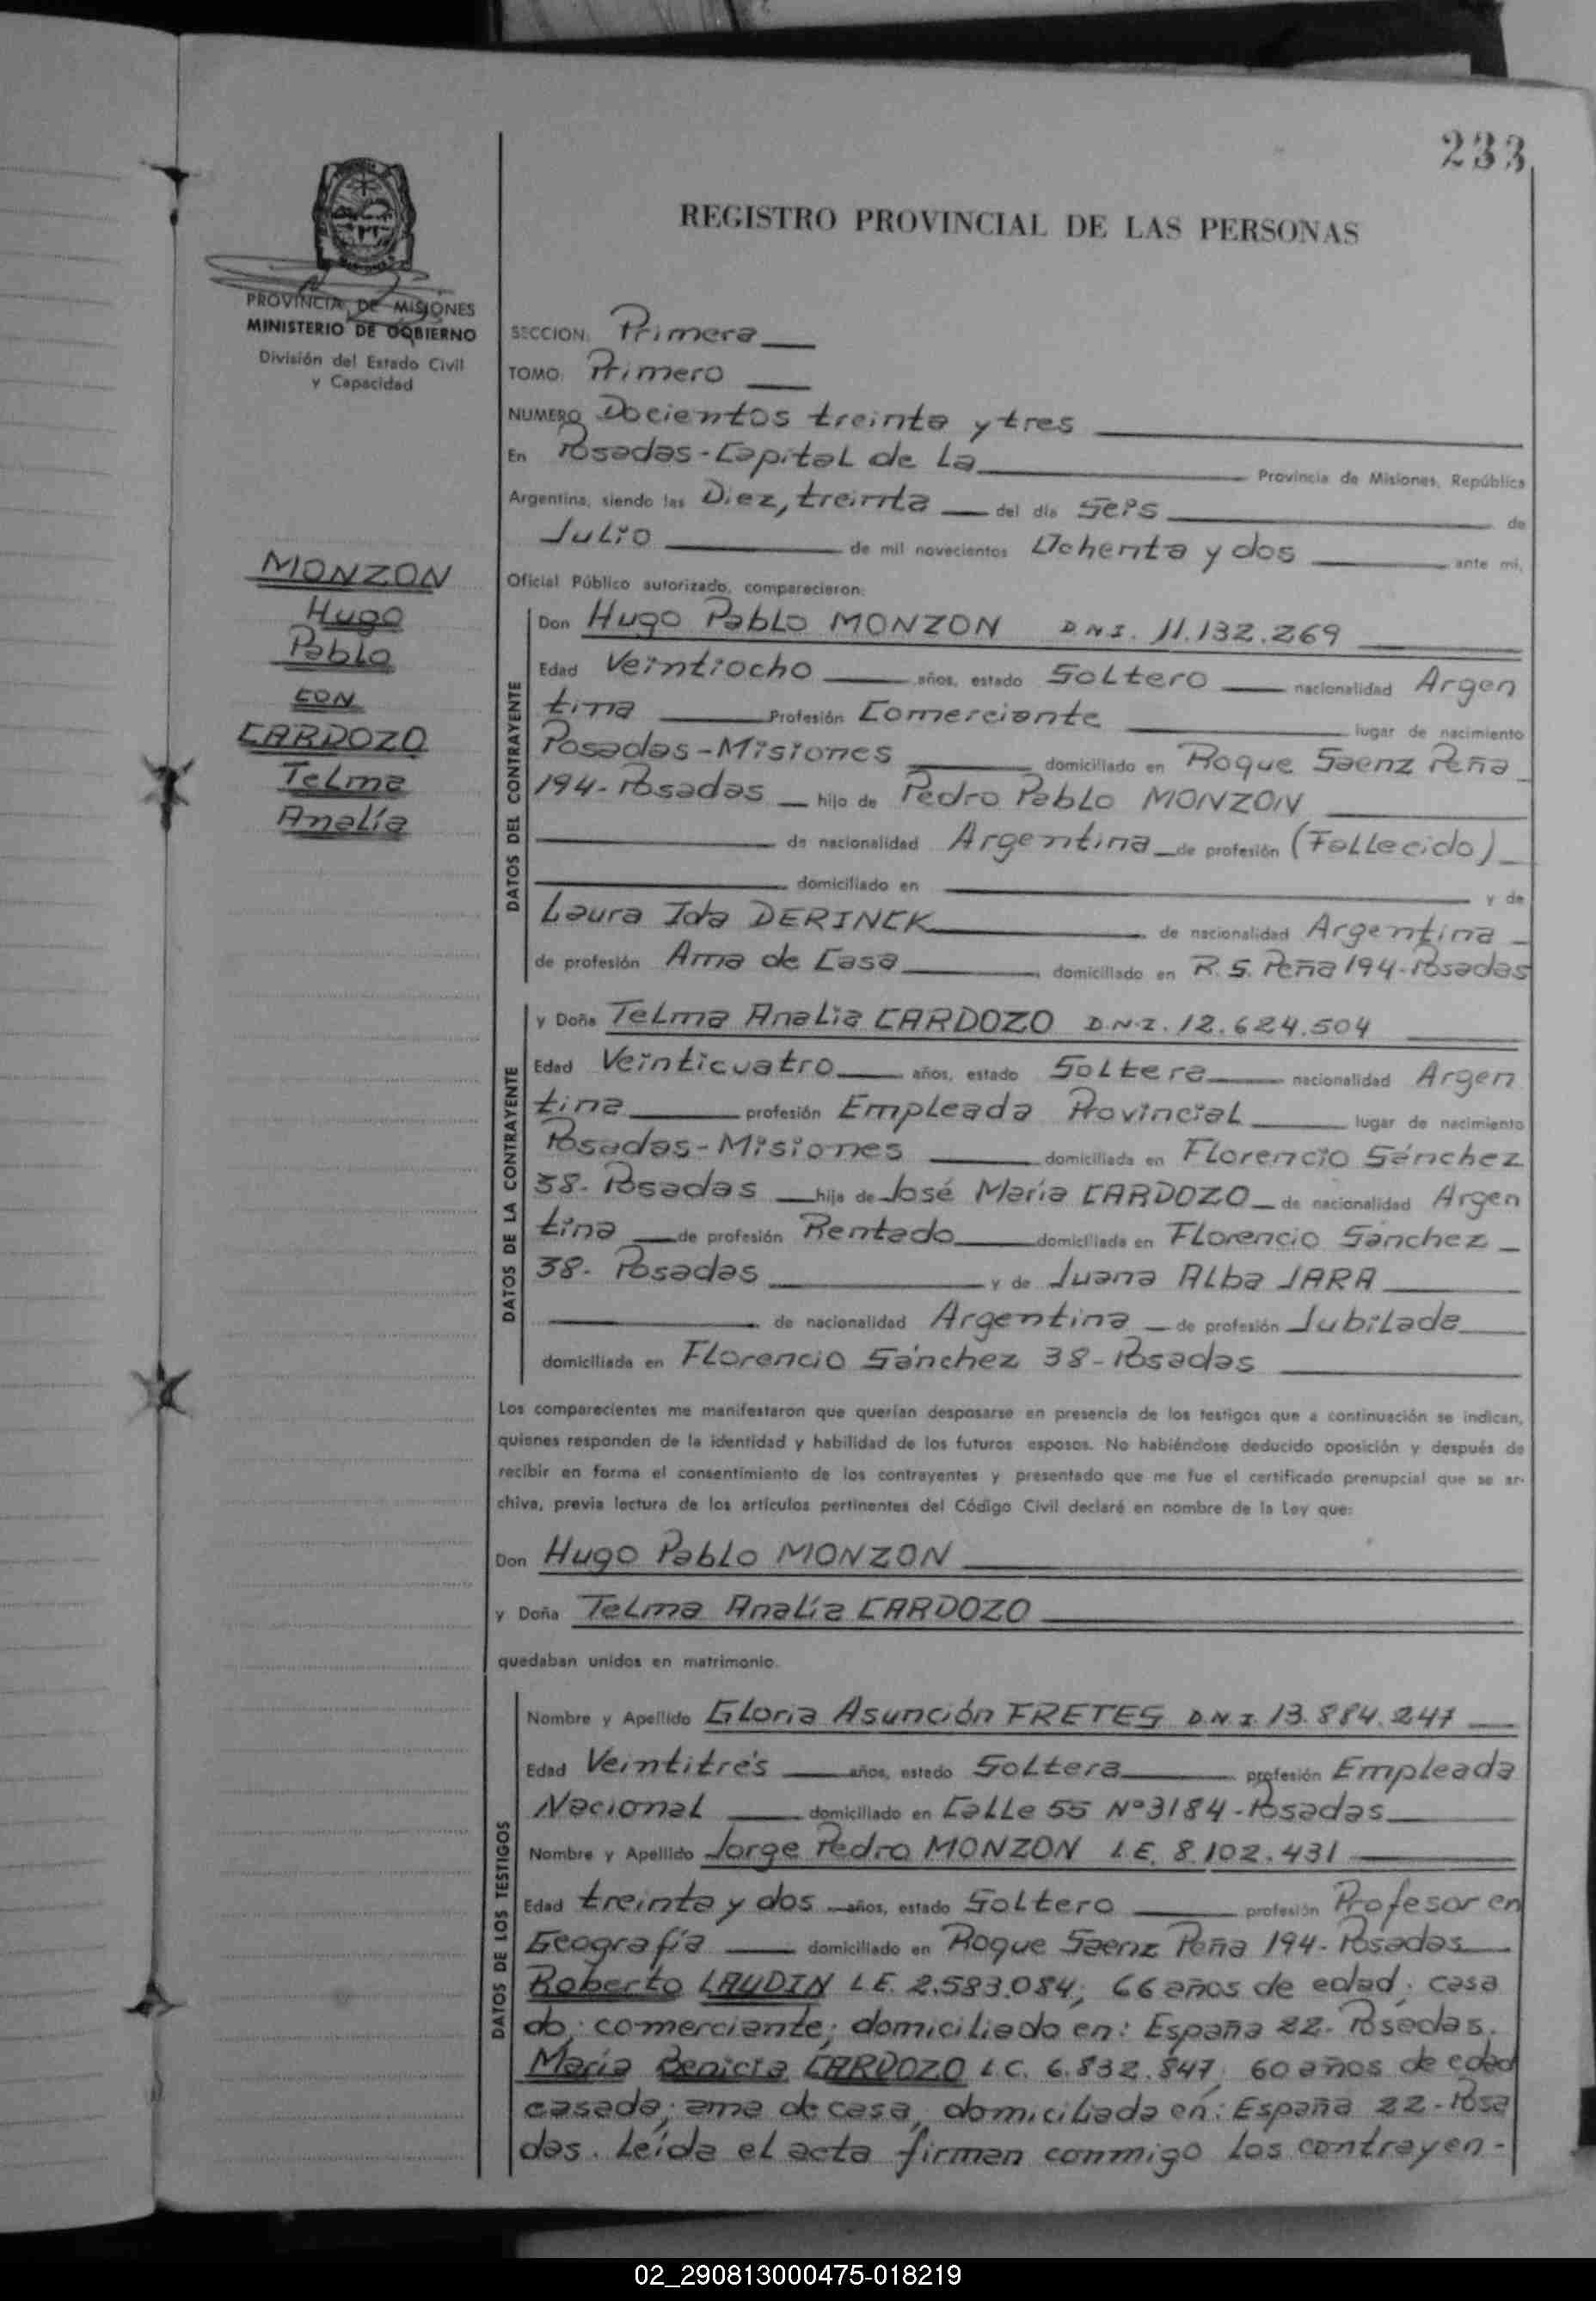 233
REGISTRO PROVINCIAL DE LAS PERSONAS
PROVINCIA DE MISIONES
MINISTERIO DE GOBIERNO
División del Estado Civil
y Capacidad
MONZON
Hugo
Pablo
CON
CARDOZO
Telma
Analía
SECCION: Primera
TOMO: Primero
NUMERO Docientos treinta y tres
En Posadas-Capital de La Provincia de Misiones, República
Argentina, siendo las Diez, treinta del día Seis de
Julio de mil novecientos Ochenta y dos ante mí,
Oficial Público autorizado, comparecieron:
DATOS DEL CONTRAYENTE
Don Hugo Pablo MONZON D.N.I. 11.132.269
Edad Veintiocho años, estado Soltero nacionalidad Argen
tina Profesión Comerciante lugar de nacimiento
Posadas-Misiones domiciliado en Roque Saenz Peña
194-Posadas hijo de Pedro Pablo MONZON
de nacionalidad Argentina de profesión (Fallecido)
domiciliado en y de
Laura Ida DERINCK de nacionalidad Argentina
de profesión Ama de Casa domiciliado en R. S. Peña 194-Posadas
DATOS DE LA CONTRAYENTE
y Doña Telma Analia CARDOZO D.N.I. 12.624.504
Edad Veinticuatro años, estado Soltera nacionalidad Argen
tina profesión Empleada Provincial lugar de nacimiento
Posadas-Misiones domiciliada en Florencio Sánchez
38-Posadas hija de José María CARDOZO de nacionalidad Argen
tina de profesión Rentado domiciliado en Florencio Sánchez
38-Posadas y de Juana Alba JARA
de nacionalidad Argentina de profesión Jubilada
domiciliada en Florencio Sánchez 38-Posadas
Los comparecientes me manifestaron que querían desposarse en presencia de los testigos que a continuación se indican,
quienes responden de la identidad y habilidad de los futuros esposos. No habiéndose deducido oposición y después de
recibir en forma el consentimiento de los contrayentes y presentado que me fue el certificado prenupcial que se ar-
chiva, previa lectura de los artículos pertinentes del Código Civil declaré en nombre de la Ley que:
Don Hugo Pablo MONZON
y Doña Telma Analía CARDOZO
quedaban unidos en matrimonio.
DATOS DE LOS TESTIGOS
Nombre y Apellido Gloria Asunción FRETES D.N.I. 13.884.247
Edad Veintitrés años, estado Soltera profesión Empleada
Nacional domiciliado en Calle 55 Nº3184-Posadas
Nombre y Apellido Jorge Pedro MONZON L.E. 8.102.431
Edad treinta y dos años, estado Soltero profesión Profesor en
Geografía domiciliado en Roque Saenz Peña 194-Posadas
Roberto LAUDIN L.E. 2.583.084; 66 años de edad; casa
do; comerciante; domiciliado en: España 22-Posadas.
María Benicia CARDOZO L.C. 6.832.847; 60 años de edad
casada; ama de casa, domiciliada en: España 22-Posa
das. Leída el acta firman conmigo los contrayen-
02_290813000475-018219